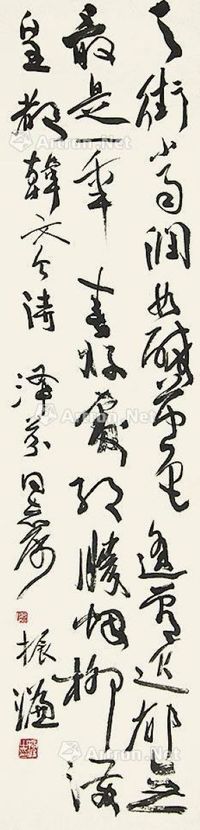 天街小雨润如酥草色遥看近却无
最是一年春好处绝胜烟柳满
皇都韩文公诗 泽芬同志属 振濂
Artron.Net
Artron.Net
Artron.Net
Artron.Net